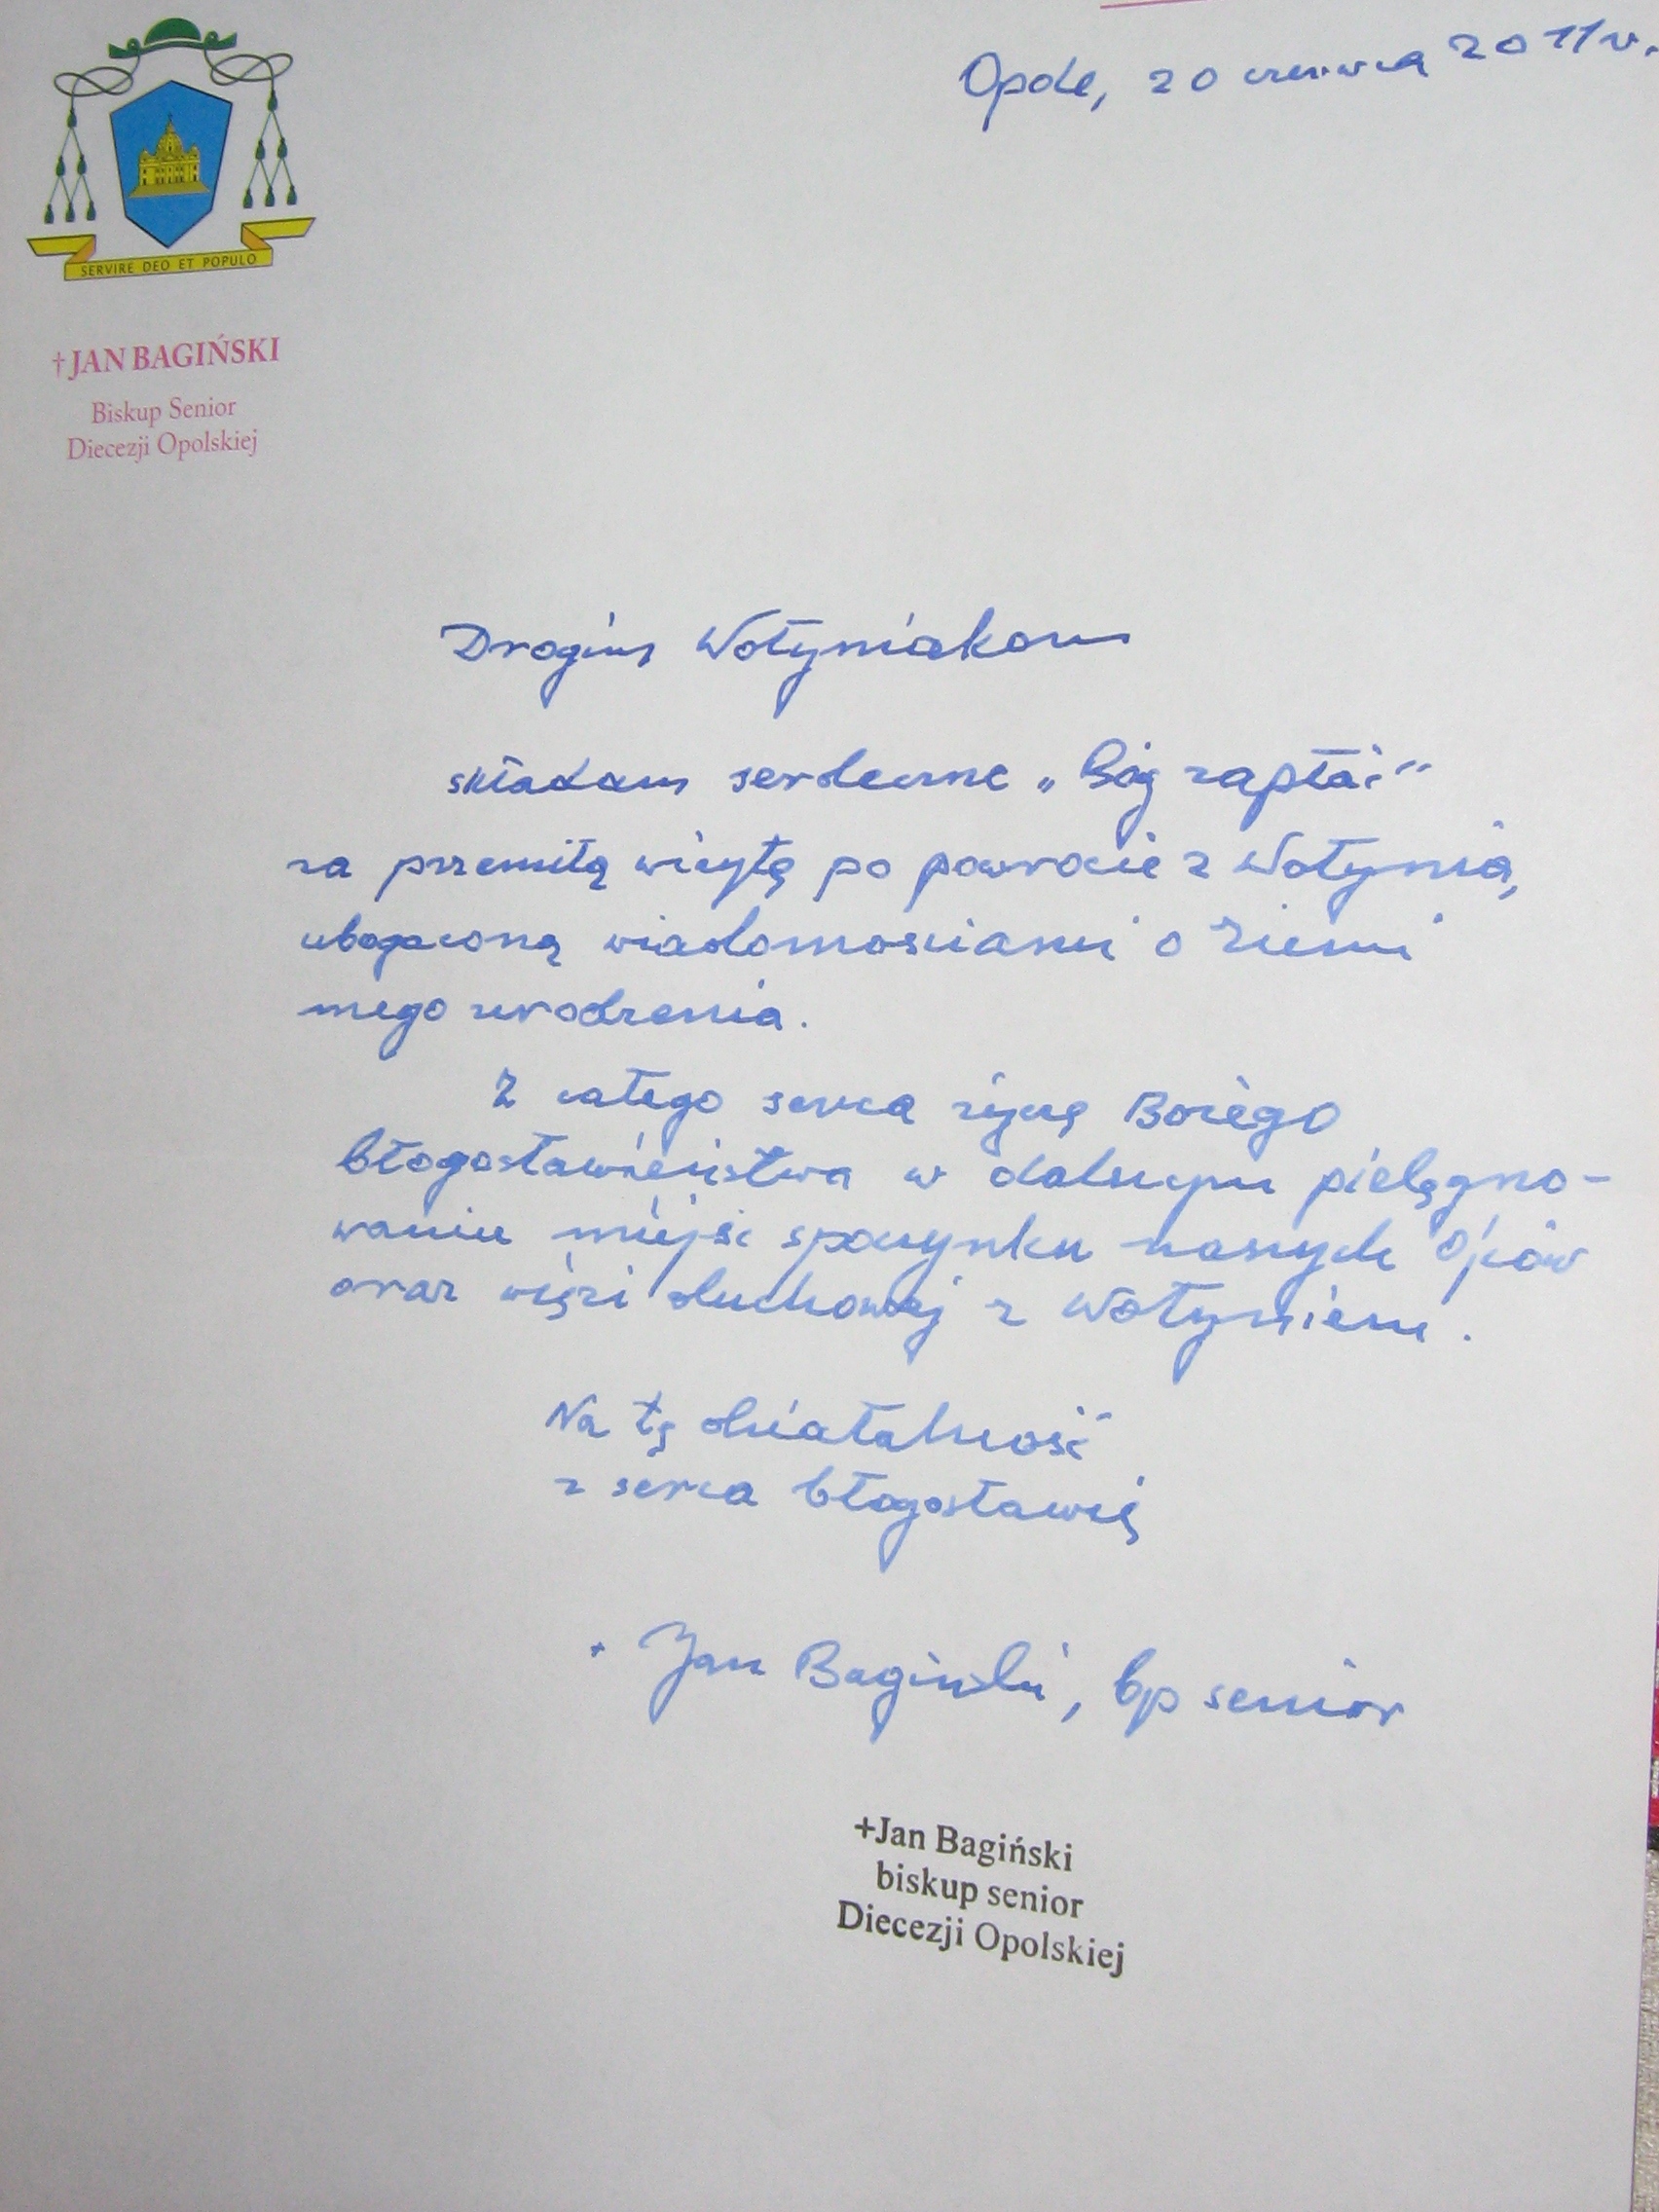 Opole, 20 czerwca 2011 r.
SERVIRE DEO ET POPULO
†JAN BAGIŃSKI
Biskup Senior
Diecezji Opolskiej
Drogim Wołyniakom
składam serdeczne „Bóg zapłać”
za przemiłą wizytę po powrocie z Wołynia,
ubogaconą wiadomościami o ziemi
mego urodzenia.
Z całego serca życzę Bożego
błogosławieństwa w dalszym pielęgno-
waniu miejsc spoczynku naszych Ojców
oraz więzi duchowej z Wołyniem.
Na tę działalność
z serca błogosławię
+ Jan Bagiński, bp senior
+Jan Bagiński
biskup senior
Diecezji Opolskiej